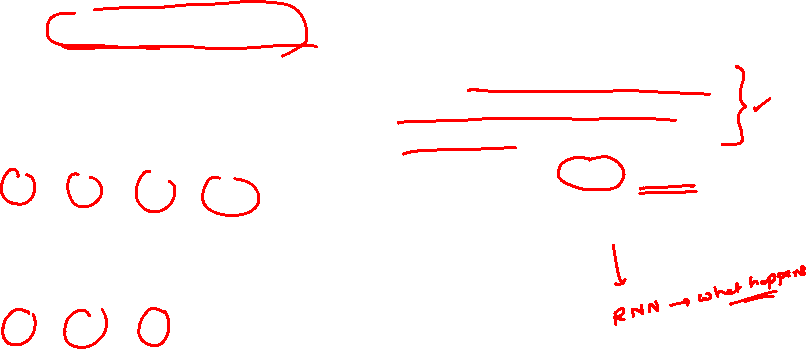 RNN → what happens